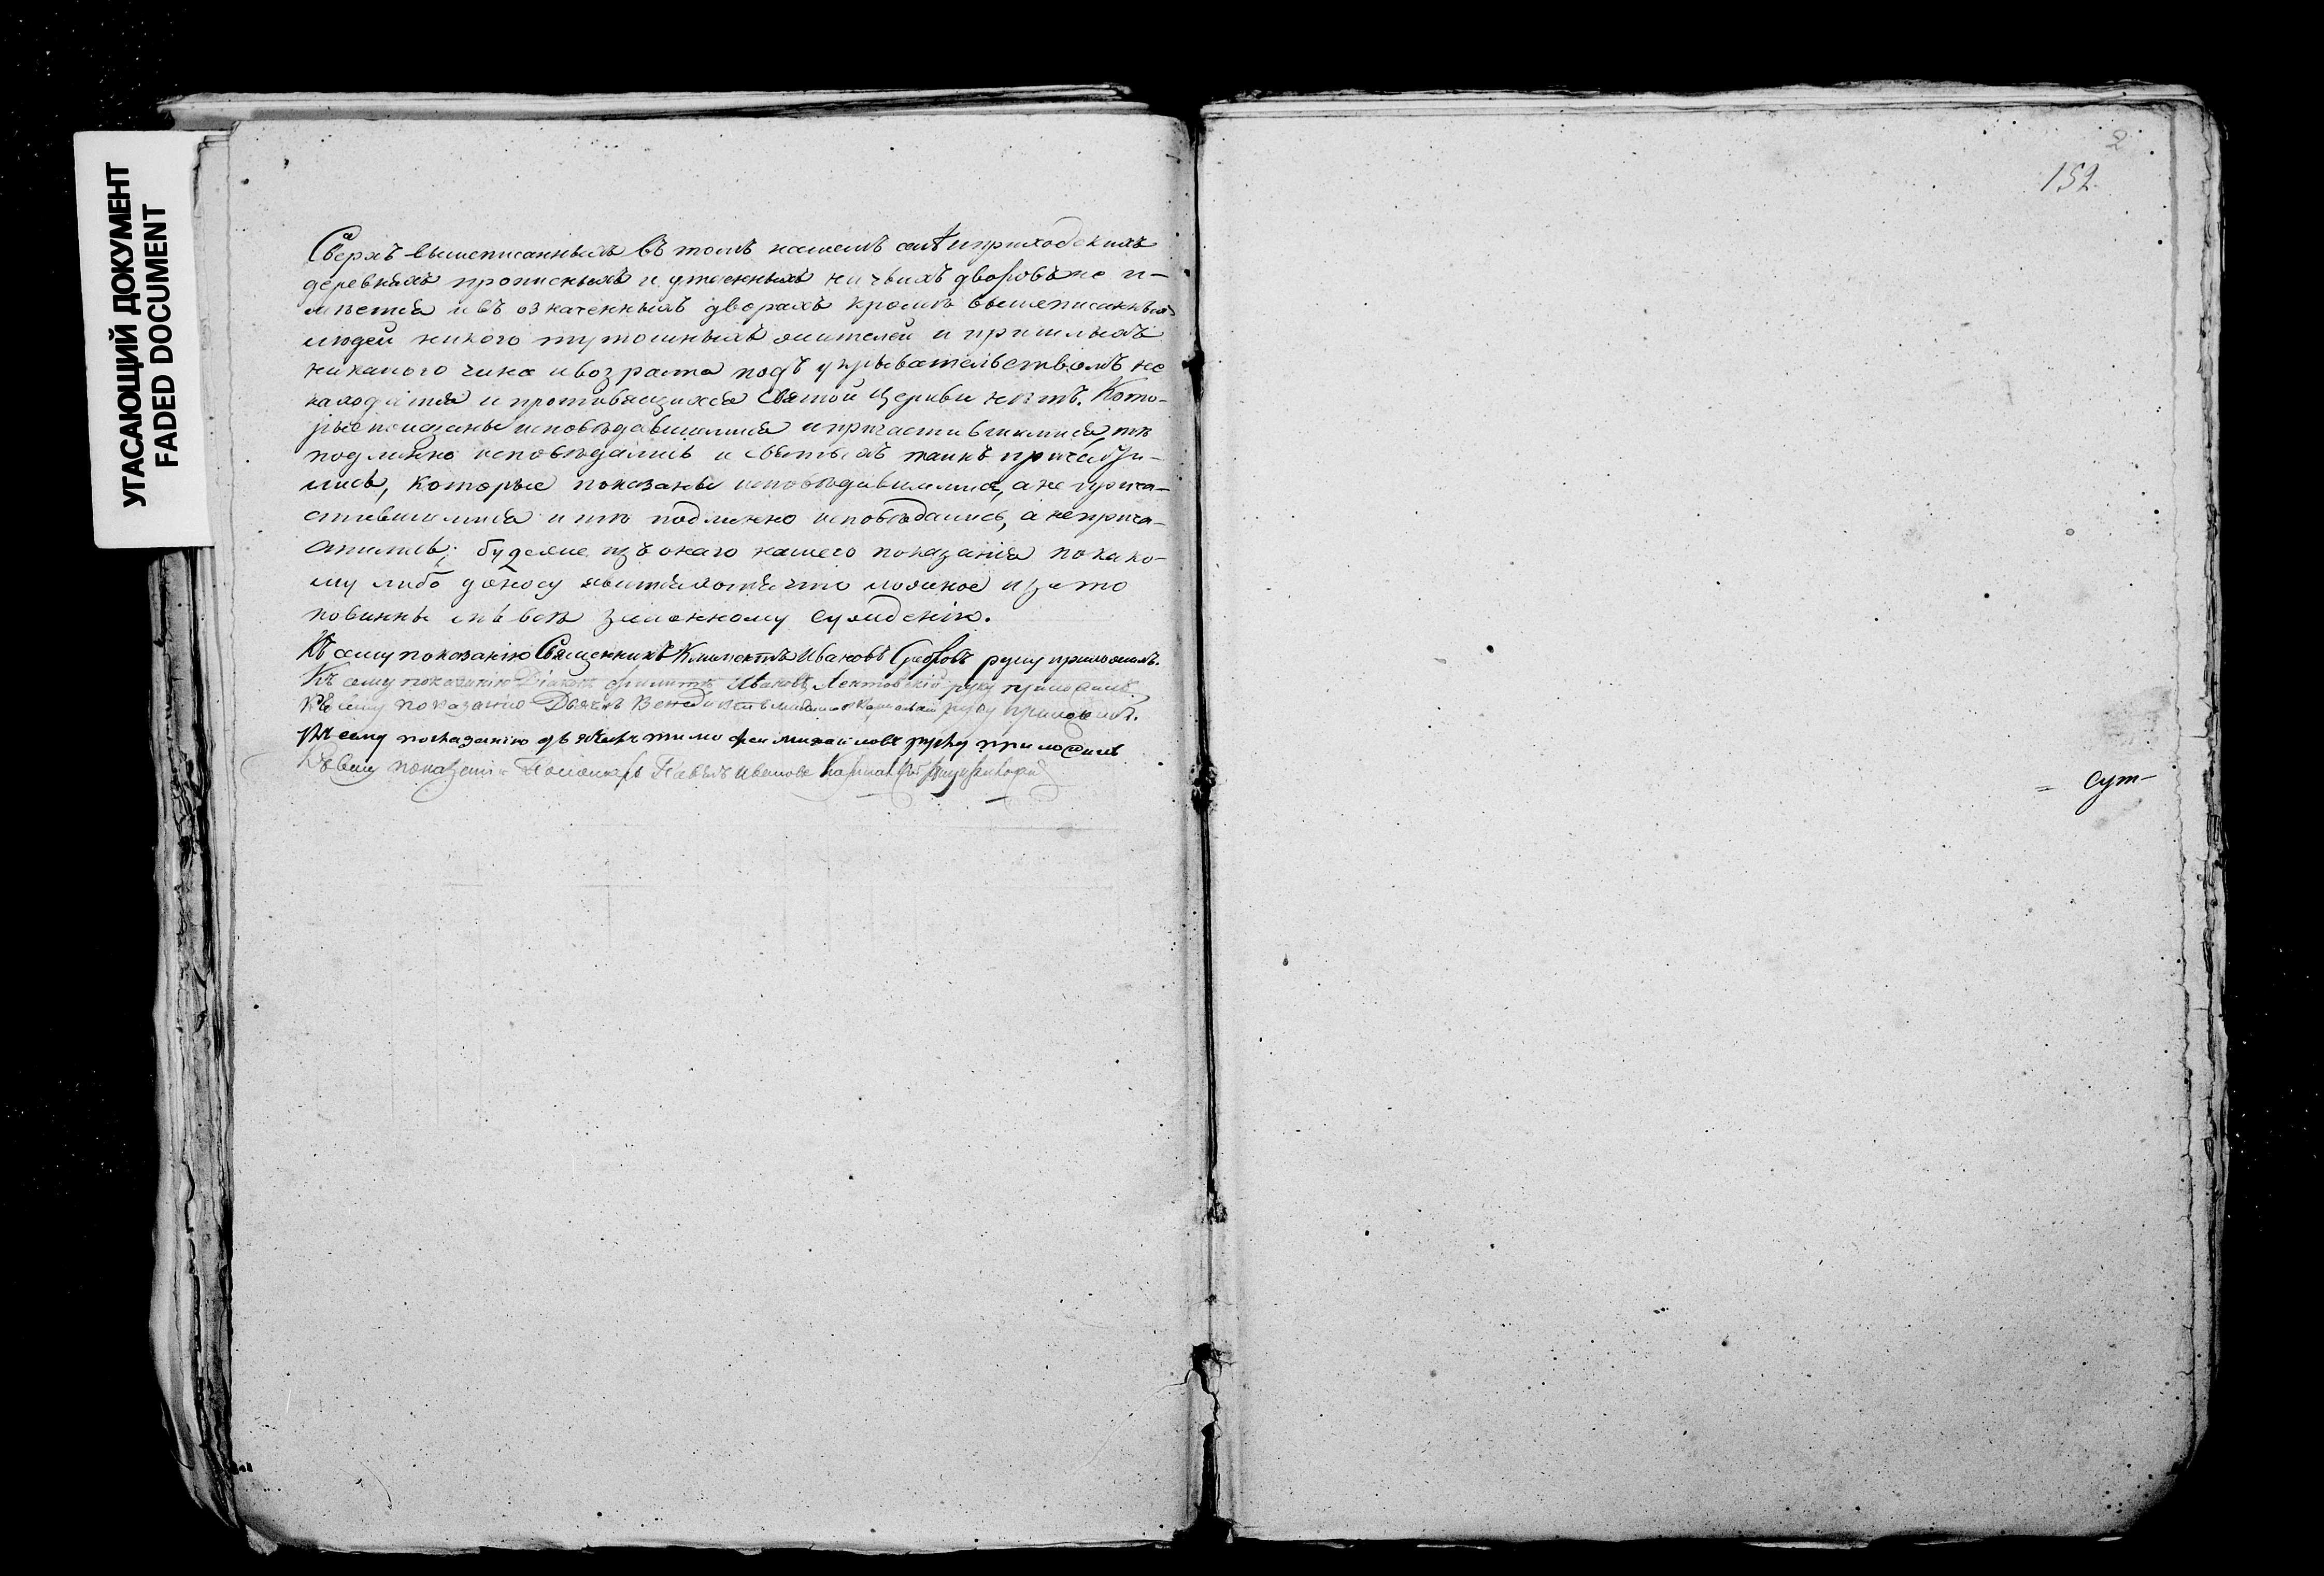 УГАСАЮЩИЙ ДОКУМЕНТ
FADED DOCUMENT
Сверхъ вышеписанныхъ въ томъ нашемъ селѣ и приходскихъ
деревняхъ прописныхъ и утаенныхъ ничьихъ дворовъ не и-
мѣется и въ означенныхъ дворахъ кромѣ вышеписанныхъ
людей никого тутошныхъ жителей и пришлыхъ
никакого чина и возраста подъ укрывательствомъ не
находятся и противящихся Святой Церкви нѣтъ. Кото-
рые показаны исповѣдавшимися и причастившимися, тѣ
подлинно исповѣдались и святыхъ таинъ прича́сти-
лись, которые показаны исповѣдавшимися, а не прича-
стившимися и тѣ подлинно исповѣдались, а не прича-
стились; буде же изъ онаго нашего показанія по како-
му либо доносу явится хотя что ложное и за то
повинны мы всѣ законному сужденію.
Къ сему показанію Священникъ Климентъ Ивановъ руку приложилъ.
Къ сему показанію Діаконъ Ивановъ Лентовскій руку приложилъ
Къ сему показанію Дьячекъ руку приложилъ.
Къ сему показанію дьячекъ тимофеи михаиловъ руку приложилъ
Къ сему показанію Пономарь Павелъ Ивановъ
2
152
= Сут-